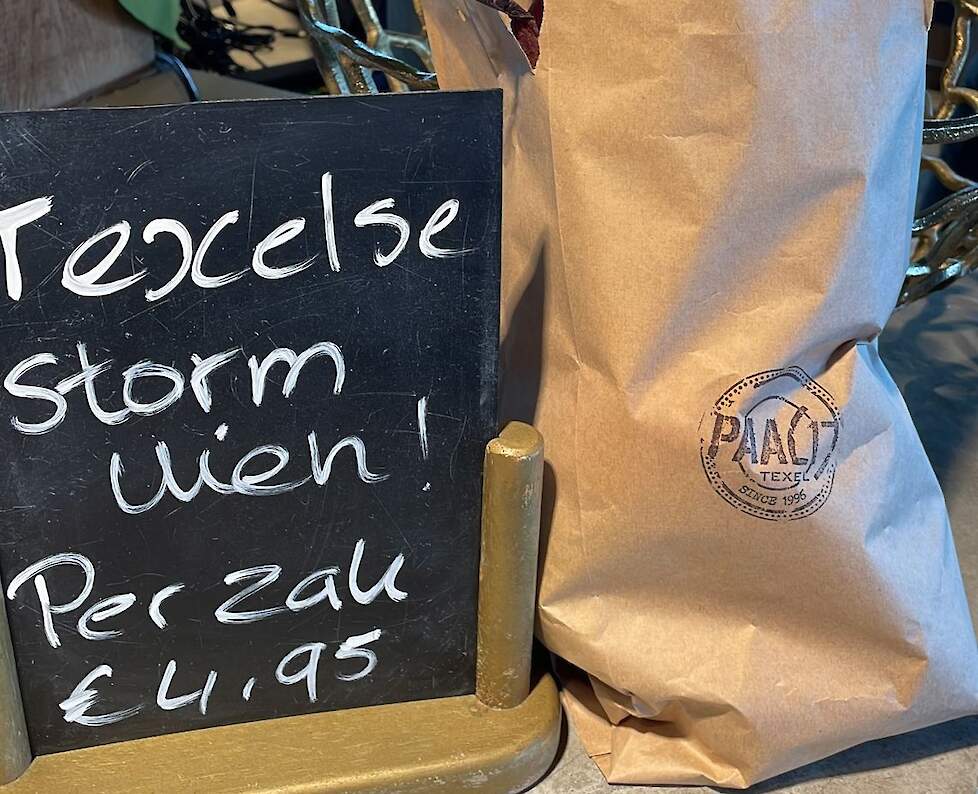 Texelse
storm
uien!
Per zak
€4,95
PAAL 17
TEXEL
SINCE 1996